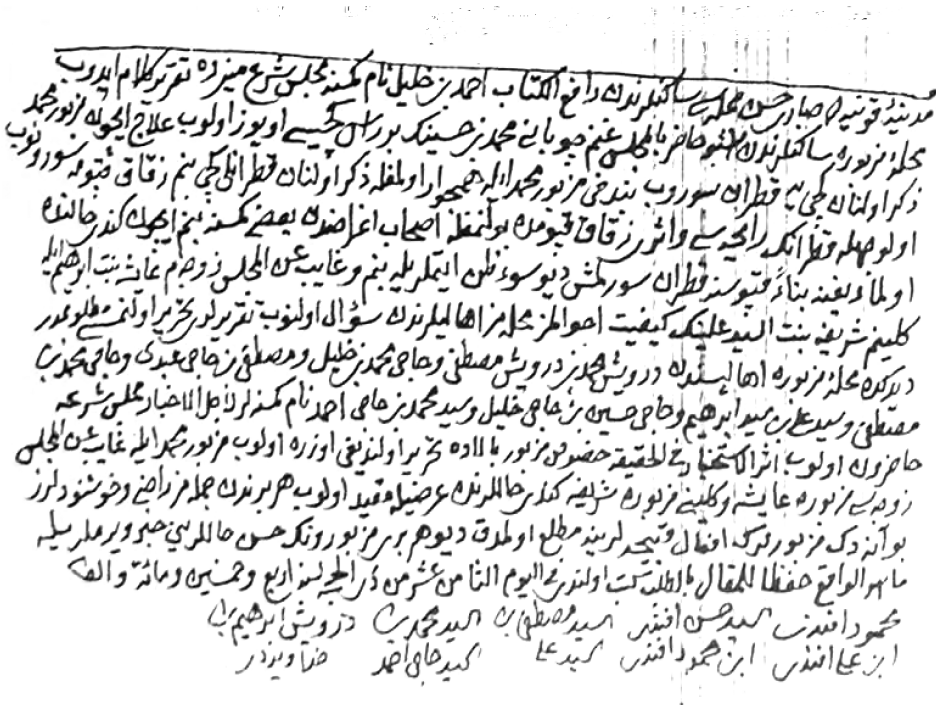 مدينۀ قونيه ده صاری حسن محله سی ساكنلرندن رافع الكتاب احمد بن خليل نام كمسنه مجلس شرع منيرده تقرير كلام ايدوب
محلۀ مزبوره ساكنلرندن اشبو حاضر بالمجلس غنم چوبانی محمد بن حسينك بر راس كچيسی اويوز اولوب علاج ايچون مزبور محمد
ذكر اولنان كچی يه قطران سوروب بندخی مزبور محمد ايله همجوار اولمغله ذكر اولنان قطرانلی كچی بنم زقاق قپومه سورونوب
اولوجهله قطرانك رايحه سی واثری زقاق قپومده بولنمغله اصحاب اغراضدن بعض كمسنه بنم ايچون كندی حالنده
اولمادیغنه بناءً قپوسنه قطران سورلمش ديو سوء ظن ايتملريله بنم وغايب عن المجلس زوجه م عايشه بنت ابراهيم ايله
كلينم شريفه بنت السيد علينك كيفيت احوالمز محله مز اهاليلرندن سؤال اولنوب تقريرلری تحرير اولنمسی مطلوبمدر
ديدكده محلۀ مزبوره اهاليسندن درويش محمد بن درويش مصطفی وحاجی محمد بن خليل ومصطفی بن حاجی عبدی وحاجی محمد بن
مصطفی وسيد علی بن سيد ابراهيم وحاجی حسين بن حاجی خليل وسيد محمد بن حاجی احمد نام كمسنه لر لاجل الاخبار مجلس شرعه
حاضرون اولوب اثر الاستخبار فی الحقيقه خصوص مزبور بالاده تحرير اولنديغی اوزره اولوب مزبور محمد ايله غايب عن المجلس
زوجه سی مزبوره عايشه وكلينی مزبوره شريفه كندی حاللرنده عرضيله مقيد اولوب هر برندن جمله مز راضی وخوشنودلرز
بو آنه دك مزبورلرك افعال قبيحه لرينه مطلع اولمدق ديو هر بری مزبورونك حسن حاللرينی خبر ويرملريله
ما هو الواقع حفظا للمقال بالطلب كتب اولندی فی اليوم الثامن عشر من ذی الحجه لسنه اربع وخمسين ومائة والف
محمود افندی السيد حسن افندی السيد مصطفی بن السيد محمد بن درويش ابراهيم بن
ابن علی افندی ابن محمود افندی السيد علی السيد حاجی احمد